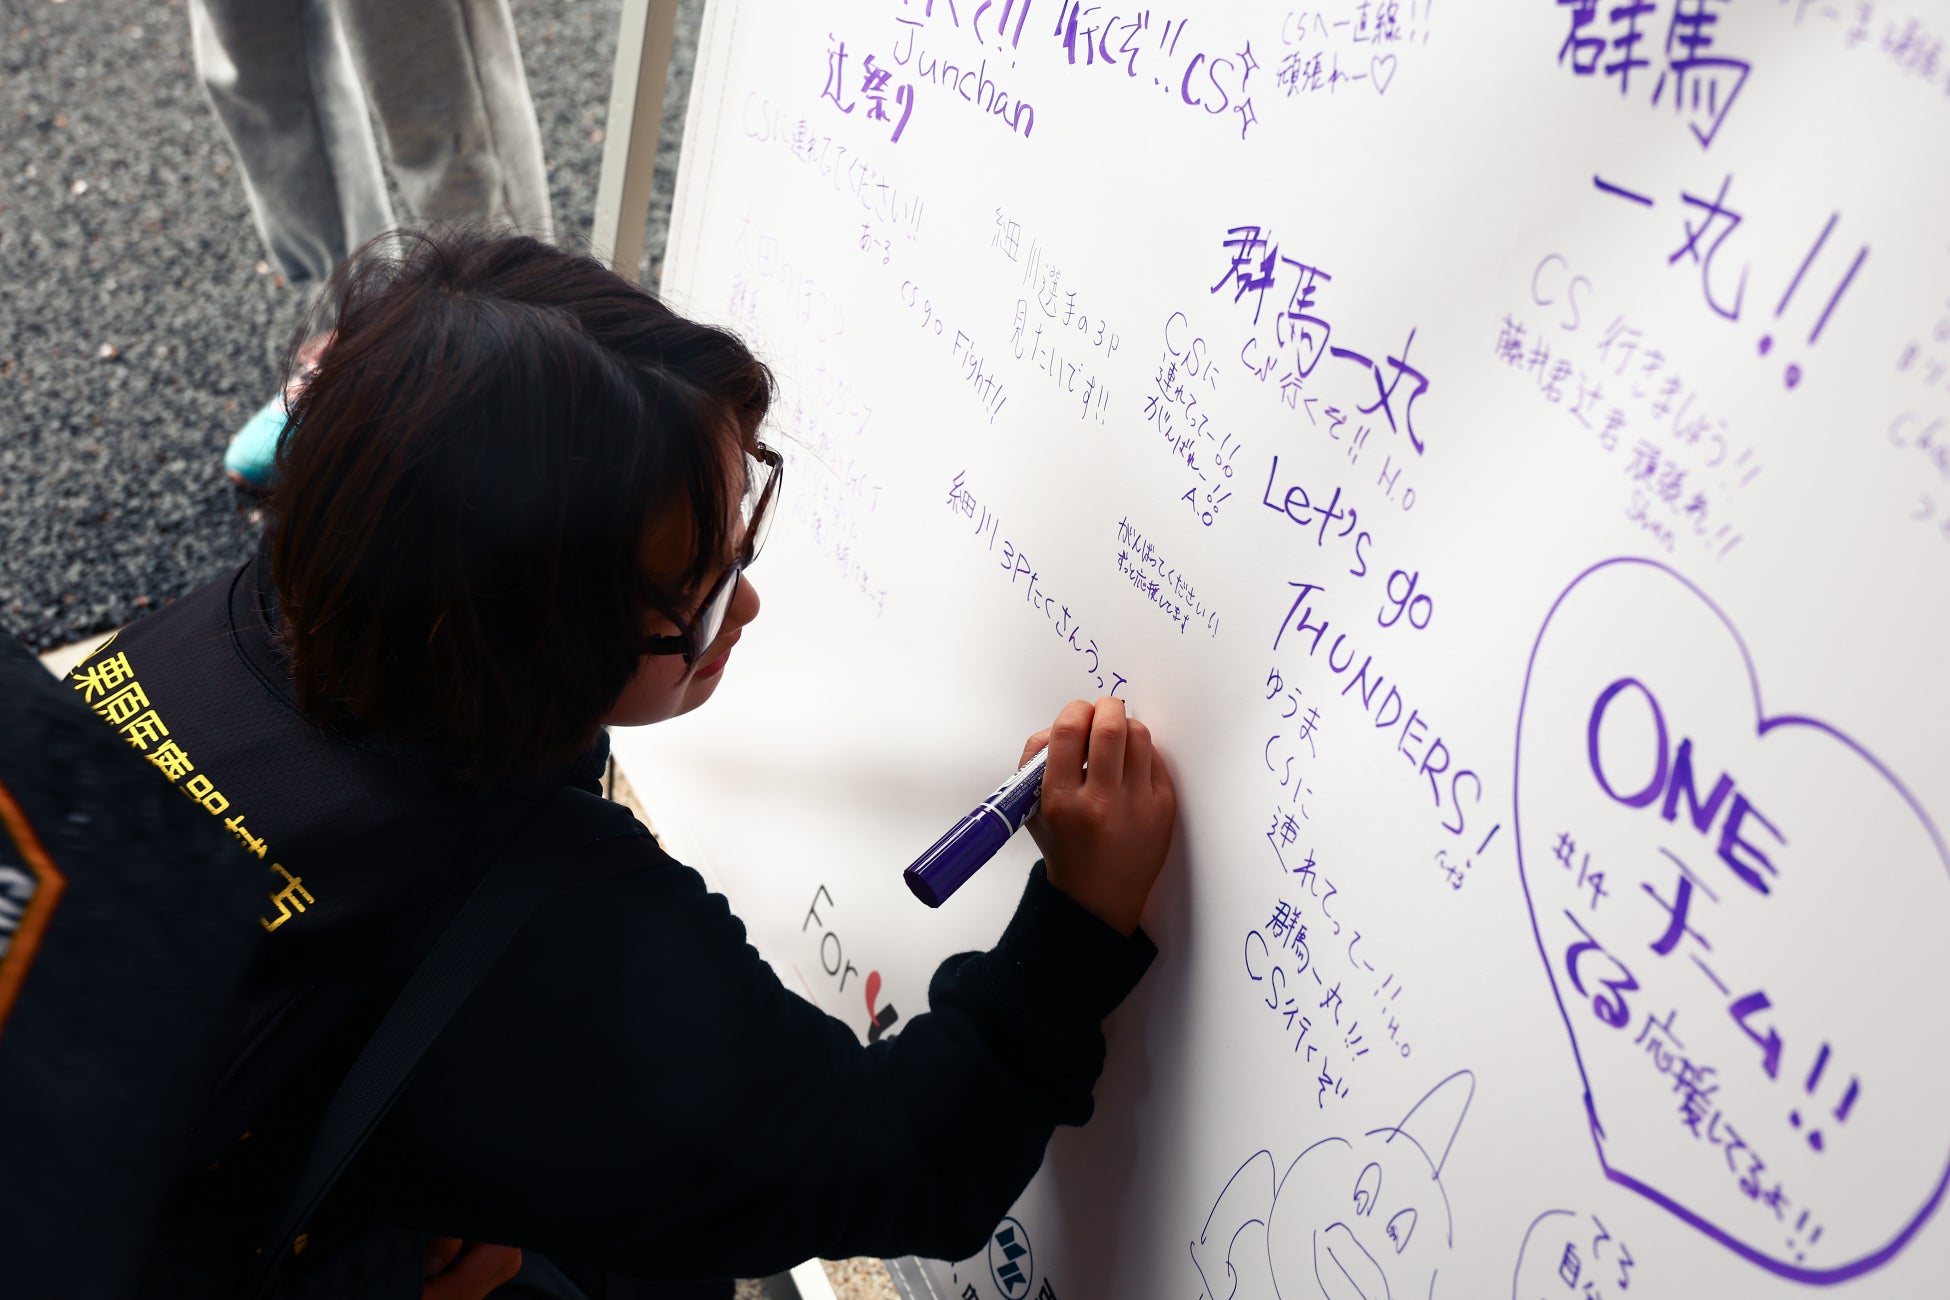 行くぞ!! CS
Junchan
辻祭り
CSへ一直線!!
頑張れー♡
群馬
一丸!!
CSに連れてってください!!
あーる
細川選手の3P
見たいです!!
cs go Fight!!
群馬一丸
CS 行くぞ!! H.O
CSに
連れてってー!!
がんばれー!!
A.O
CS 行きましょう!!
藤井君辻君 頑張れ!!
Shun
細川3Pたくさんうって
がんばってください!!
ずっと応援してます
Let's go
THUNDERS!
ゆうま
CSに
連れてってー!! H.O
群馬一丸!!!
CS行くぞ
ONE
チーム!!
#14
てる
応援してるよ!!
For
てる
栗原医療器械店